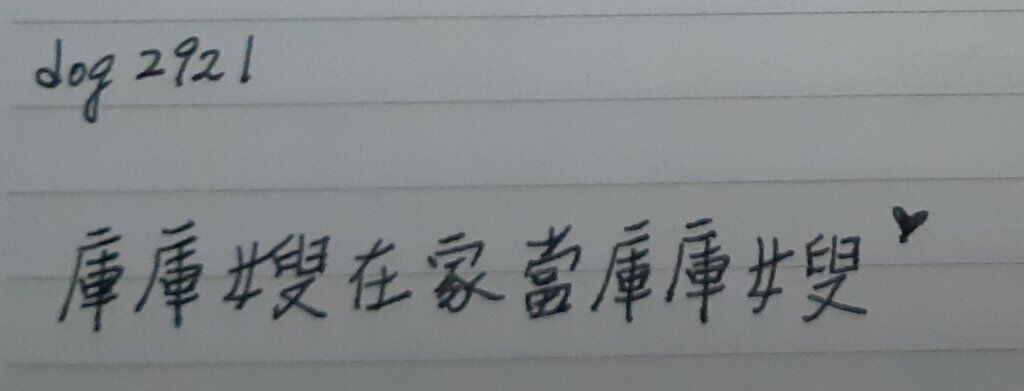 dog 2921
庫庫嫂在家當庫庫嫂♥